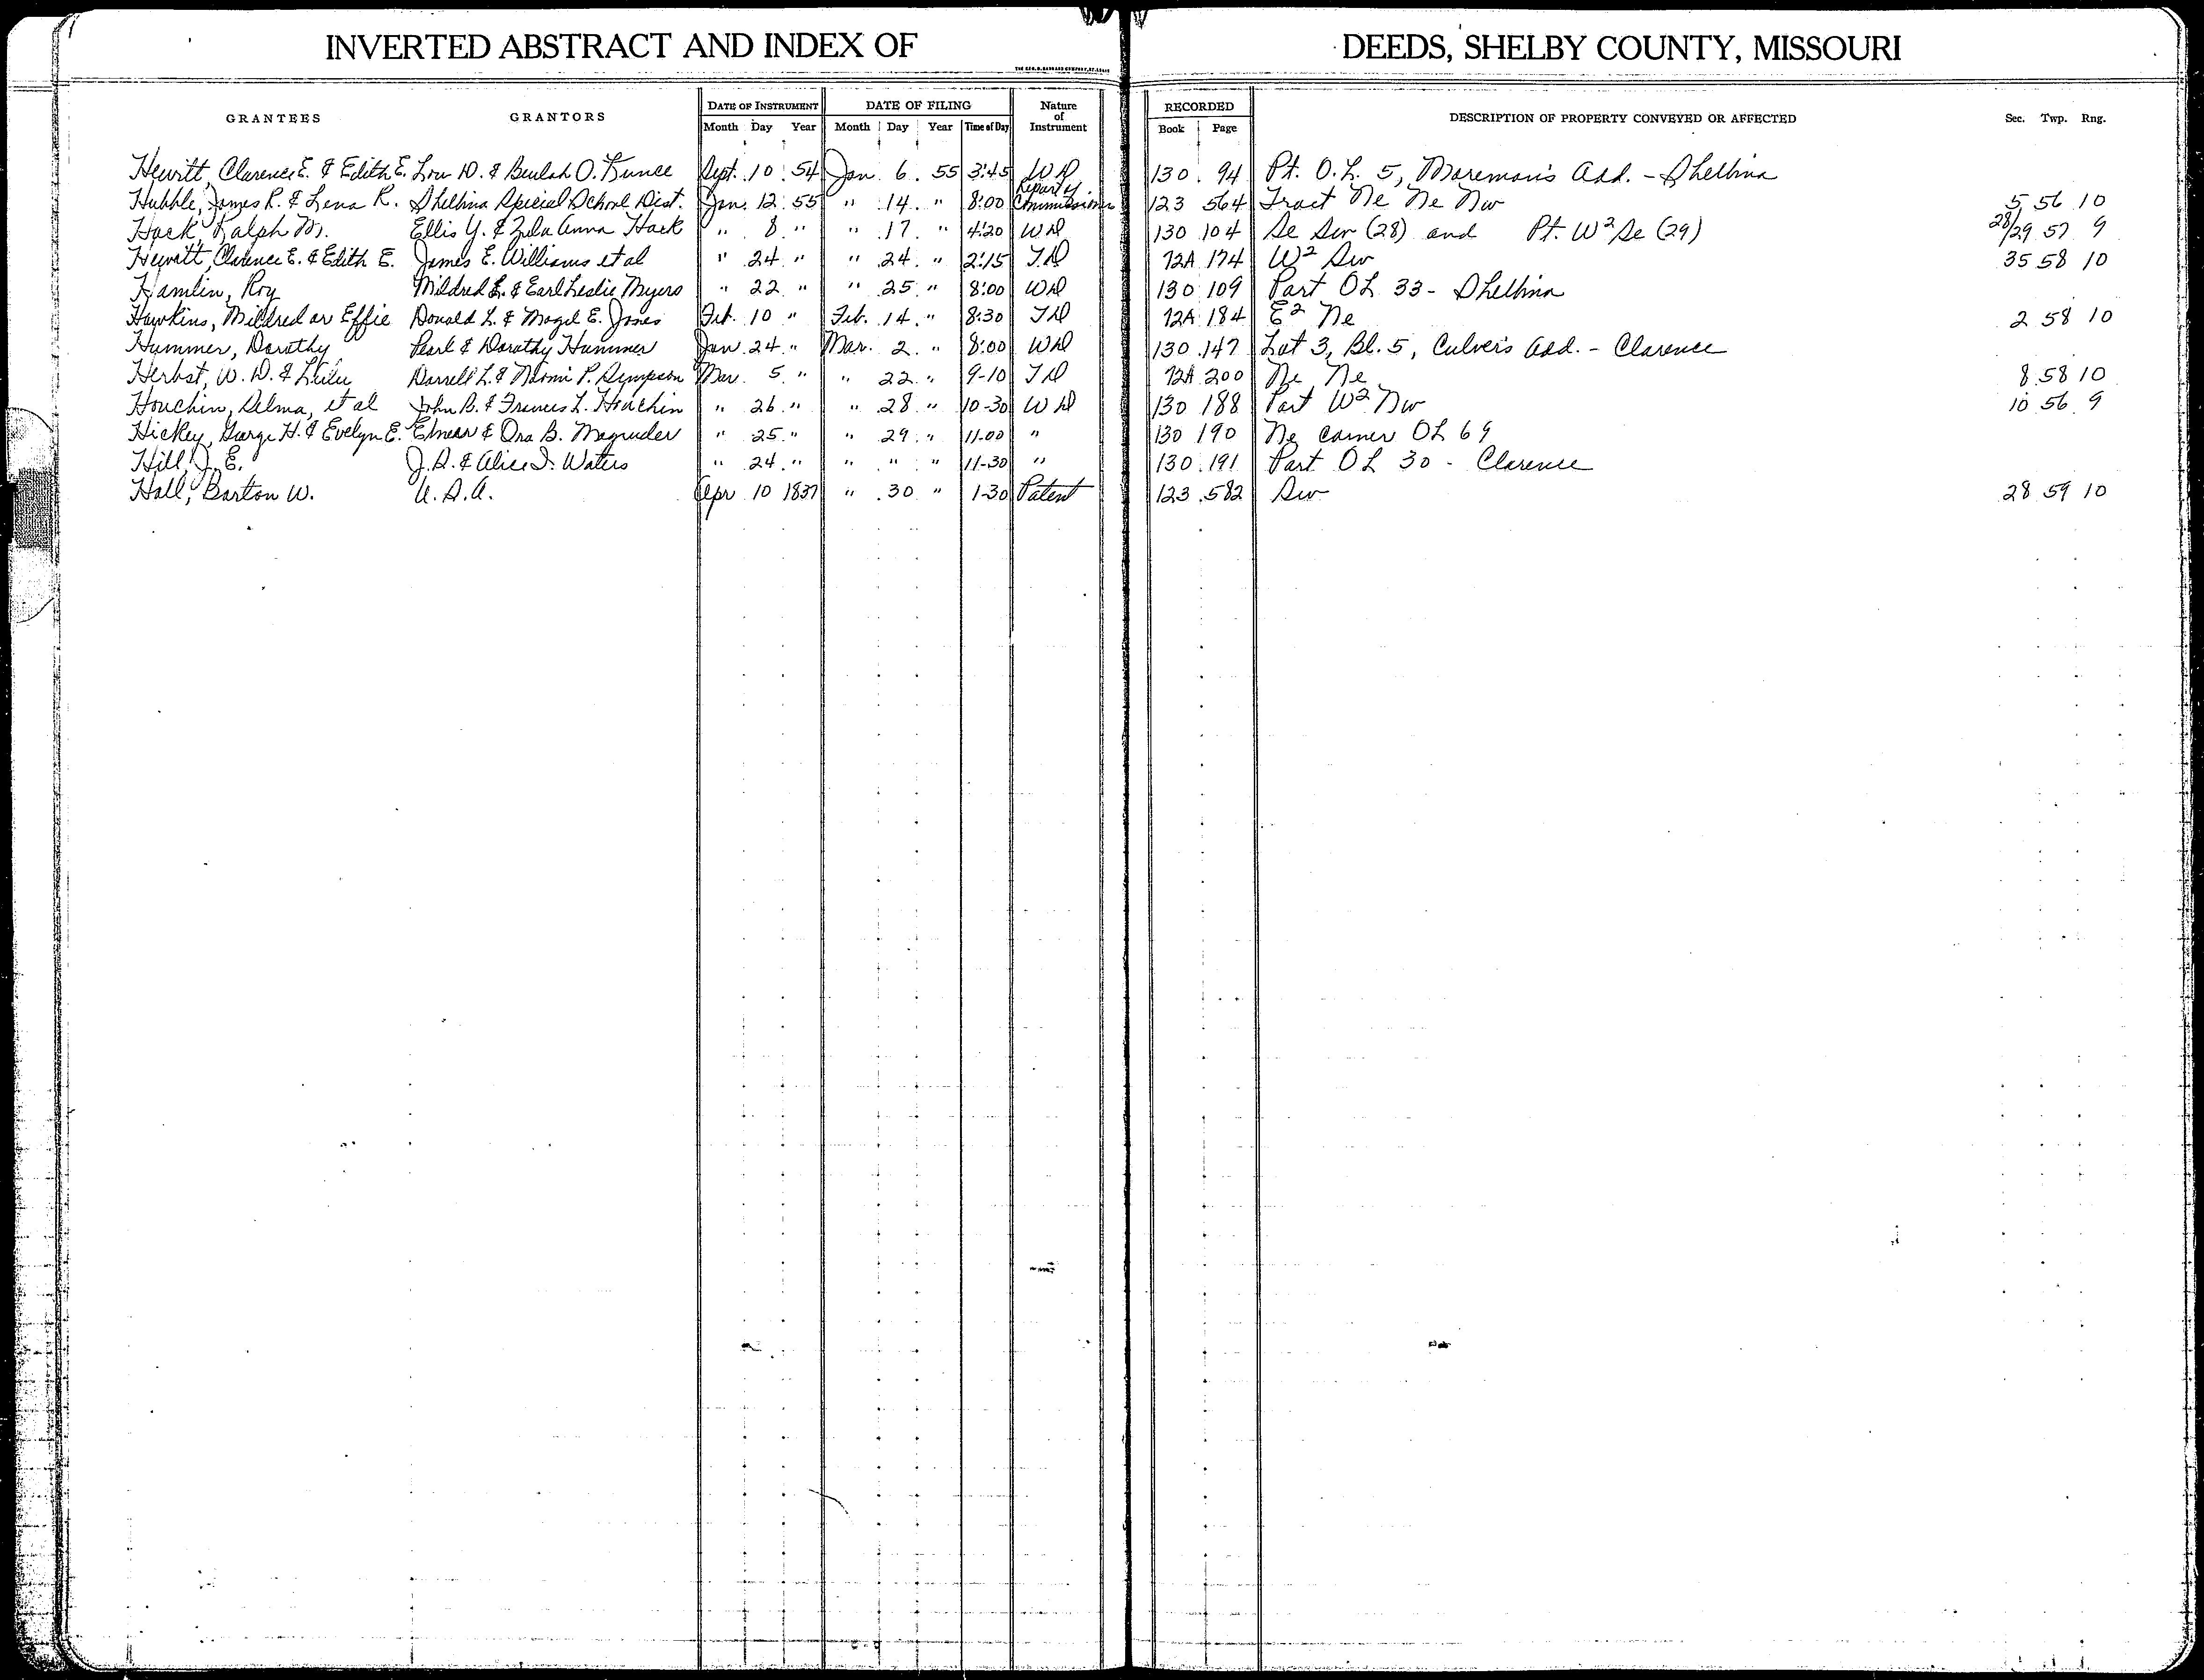 INVERTED ABSTRACT AND INDEX OF DEEDS, SHELBY COUNTY, MISSOURI
GRANTEES GRANTORS DATE OF INSTRUMENT DATE OF FILING Nature of Instrument RECORDED DESCRIPTION OF PROPERTY CONVEYED OR AFFECTED Sec. Twp. Rng.
Month Day Year Month Day Year Time of Day Book Page
Hewitt, Clarence E. & Edith E. Lou D. & Beulah O. Kunce Sept. 10 54 Jan. 6 55 3:45 WD 130 94 Pt. O.L. 5, Moreman's Add. - Shelbina
Hubble, James R. & Lena R. Shelbina Special School Dist. Jan. 12 55 " 14 " 8:00 Report of Commissioner 123 564 Tract Ne Ne Nw 5 56 10
Hack, Ralph M. Ellis Y. & Zula Anna Hack " 8 " " 17 " 4:20 WD 130 104 Se Sw (28) and Pt. W² Se (29) 28/29 57 9
Hewitt, Clarence E. & Edith E. James E. Williams et al " 24 " " 24 " 2:15 TD 72A 174 W² Sw 35 58 10
Hamlin, Roy Mildred L. & Earl Leslie Myers " 22 " " 25 " 8:00 WD 130 109 Part OL 33 - Shelbina
Hawkins, Mildred or Effie Donald L. & Magel E. Jones Feb. 10 " Feb. 14 " 8:30 TD 72A 184 E² Ne 2 58 10
Hummer, Dorothy Pearl & Dorothy Hummer Jan. 24 " Mar. 2 " 8:00 WD 130 147 Lot 3, Bl. 5, Culver's Add. - Clarence
Herbst, W. D. & Lulu Darrell L. & Naomi P. Sympson Mar. 5 " " 22 " 9-10 TD 72A 200 Ne Ne 8 58 10
Houchin, Delma, et al John B. & Frances L. Houchin " 26 " " 28 " 10-30 WD 130 188 Part W² Nw 10 56 9
Hickey, George H. & Evelyn E. Elmear & Ora B. Magruder " 25 " " 29 " 11-00 " 130 190 Ne Corner OL 69
Hill, J. E. J. D. & Alice I. Waters " 24 " " " " 11-30 " 130 191 Part OL 30 - Clarence
Hall, Barton W. U.S.A. Apr 10 1837 " 30 " 1-30 Patent 123 582 Sw 28 59 10